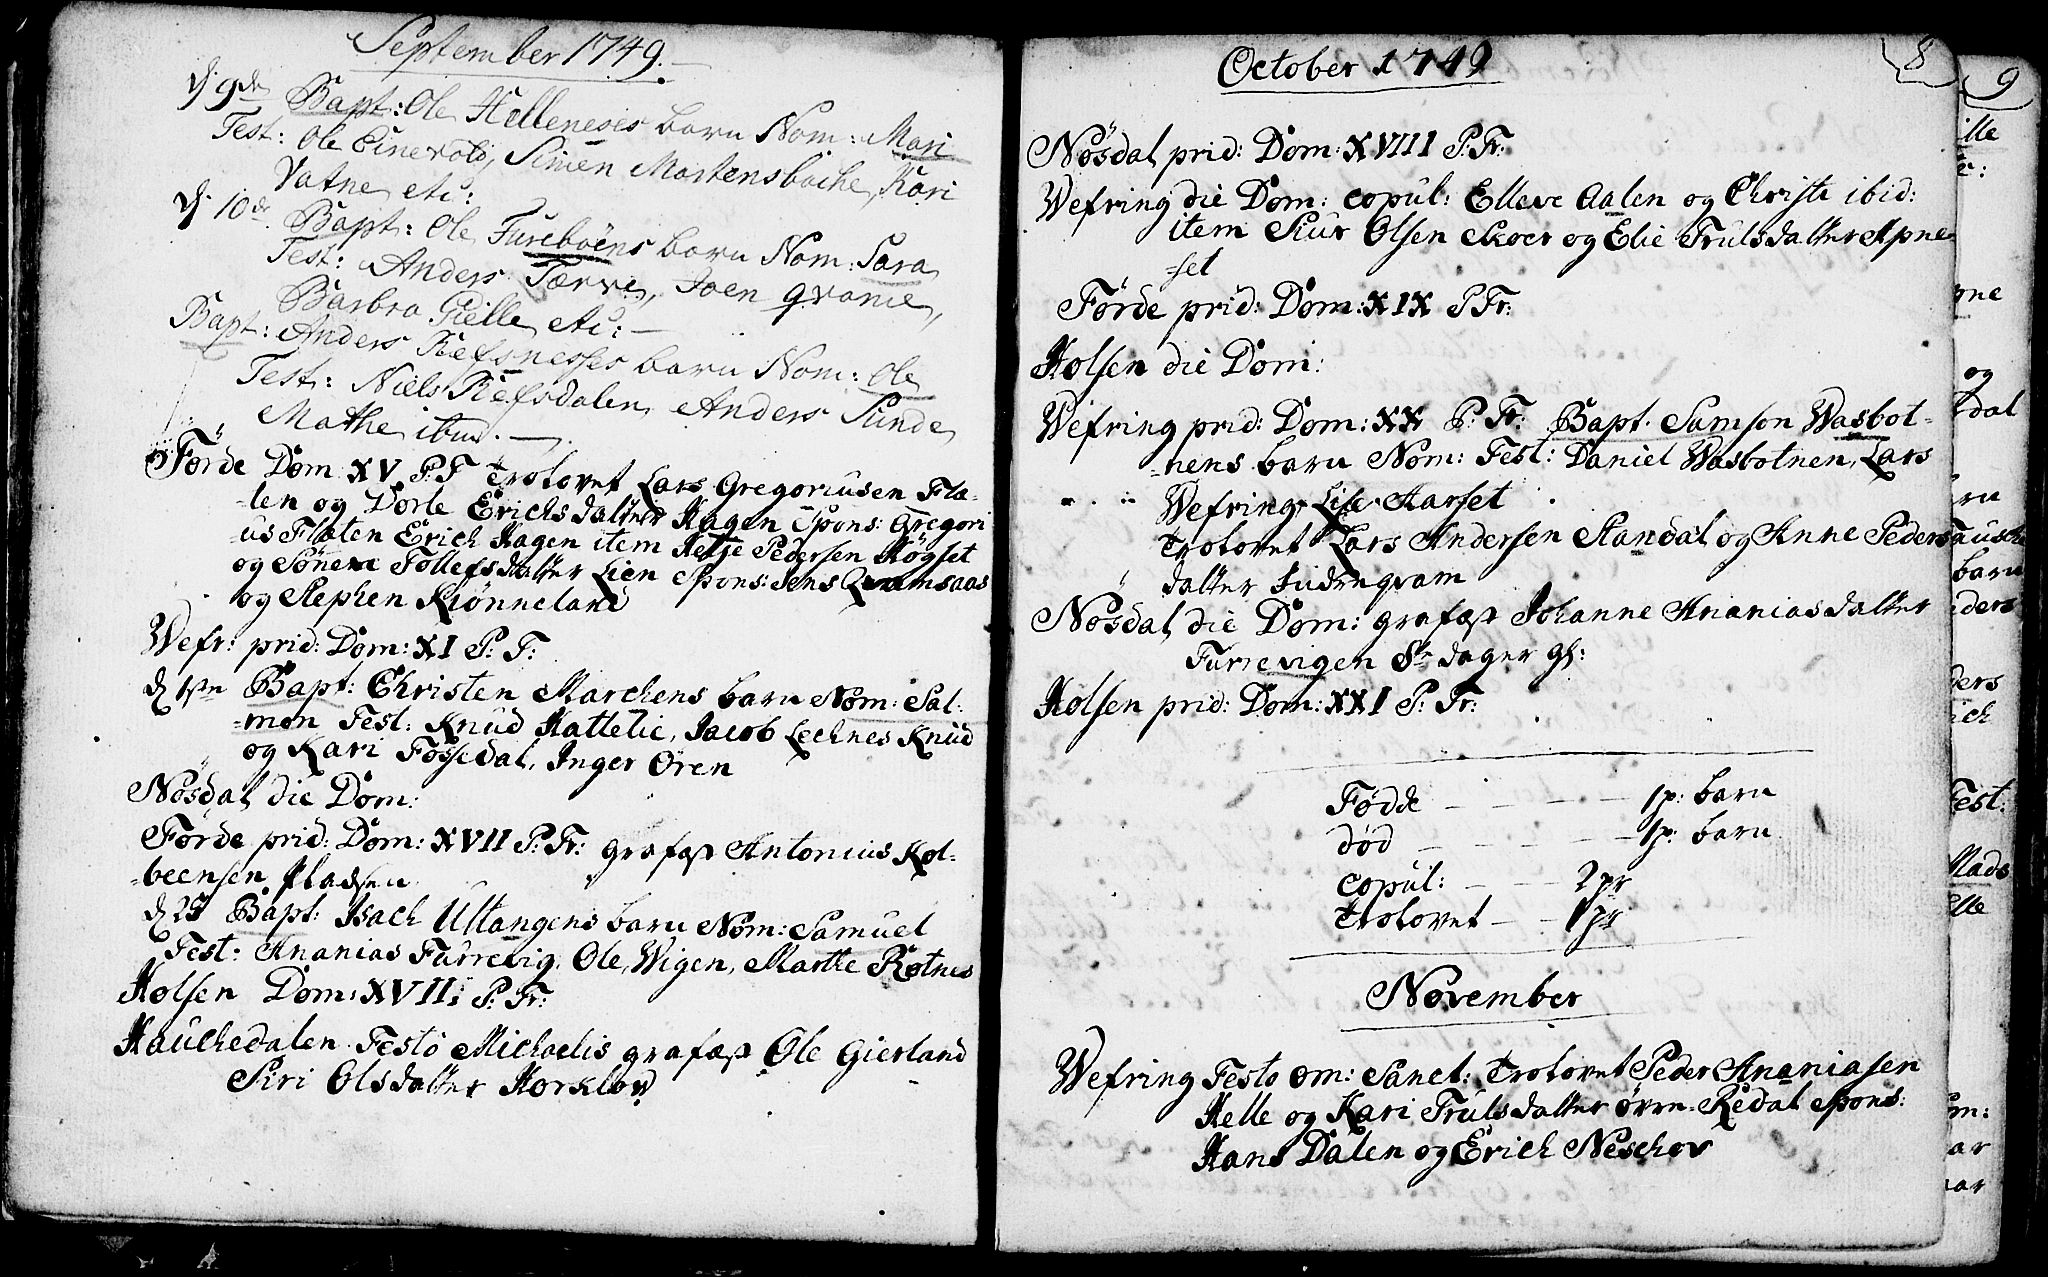 September 1749.
d. 9de Bapt: Ole Helleneses barn Nom: Mari
Test: Ole Einevold, Simen Mortensbache, Kari
Vatne etc:
d. 10de Bapt: Ole Fureboens barn Nom: Sara
Test: Anders Tærve, Joen qvame,
Barbra Gielle etc: —
Bapt: Anders Refsnesses barn Nom: Ole
Test: Niels Refsdalen, Anders Sunde
Mathe ibid. —
Førde Dom XV. P. T Trolovet Lars Gregoriusen Flæ-
-len og Dorte Erichsdatter Hagen Spons: Gregori
-us Flæten Erich Hagen item Helje Pedersen Høgset
og Sønève Tollefsdatter Lien Spons: Jens Qvamsaas
og Stephen Krønneland
Wefr: prid: Dom: XI P: T:
d 15de Bapt: Christen Marchens barn Nom: Sal-
-mon Test: Knud Hattelie, Jacob Lechnes Knud
og Kari Fossedal, Inger Øren
Nøsdal die Dom:
Førde prid: Dom: XVII P: Tr: grafæst Antonius Kol-
-beensen Pladsen
d 25 Bapt: Isach Ultangens barn Nom: Samuel
Test: Ananias Furrevig, Ole Wigen, Marthe Rotnes
Holsen Dom: XVII: P: Tr:
Hauchedalen Festo Michaelis grafæst Ole Gierland
Siri Olsdatter Horklov
8
October 1749
Nøsdal prid: Dom: XVIII P: Tr:
Wefring die Dom: copul: Elleve Aalen og Christi ibid:
item Siur Olsen Skoer og Elie Trulsdatter Apne-
-set
Førde prid: Dom: XIX P Tr:
Holsen die Dom:
Wefring prid: Dom: XX P: Tr: Bapt. Samson Wasbot-
-nens barn Nom: Test: Daniel Wasbotnen, Lars
Wefring, Lise Aarset
Trolovet Lars Andersen Standal og Anne Peders
datter Indreqvam
Nøsdal die Dom: grafæst Johanne Ananiasdatter
Furrevigen 8te dager gl:
Holsen prid: Dom: XXI P: Tr:
Fødde — — — — 1 p: barn
død — — — — 1 p: barn
copul: — — — 2 pr
Trolovet — — 1 pr
November
Wefring Festo om: Sanct: Trolovet Peder Ananiasen
Helle og Kari Trulsdatter øvre Redal Spons:
Hans Dalen og Erich Neschov
9
ille
og
dal
barn
ders
ich
Test.
Mads
elle